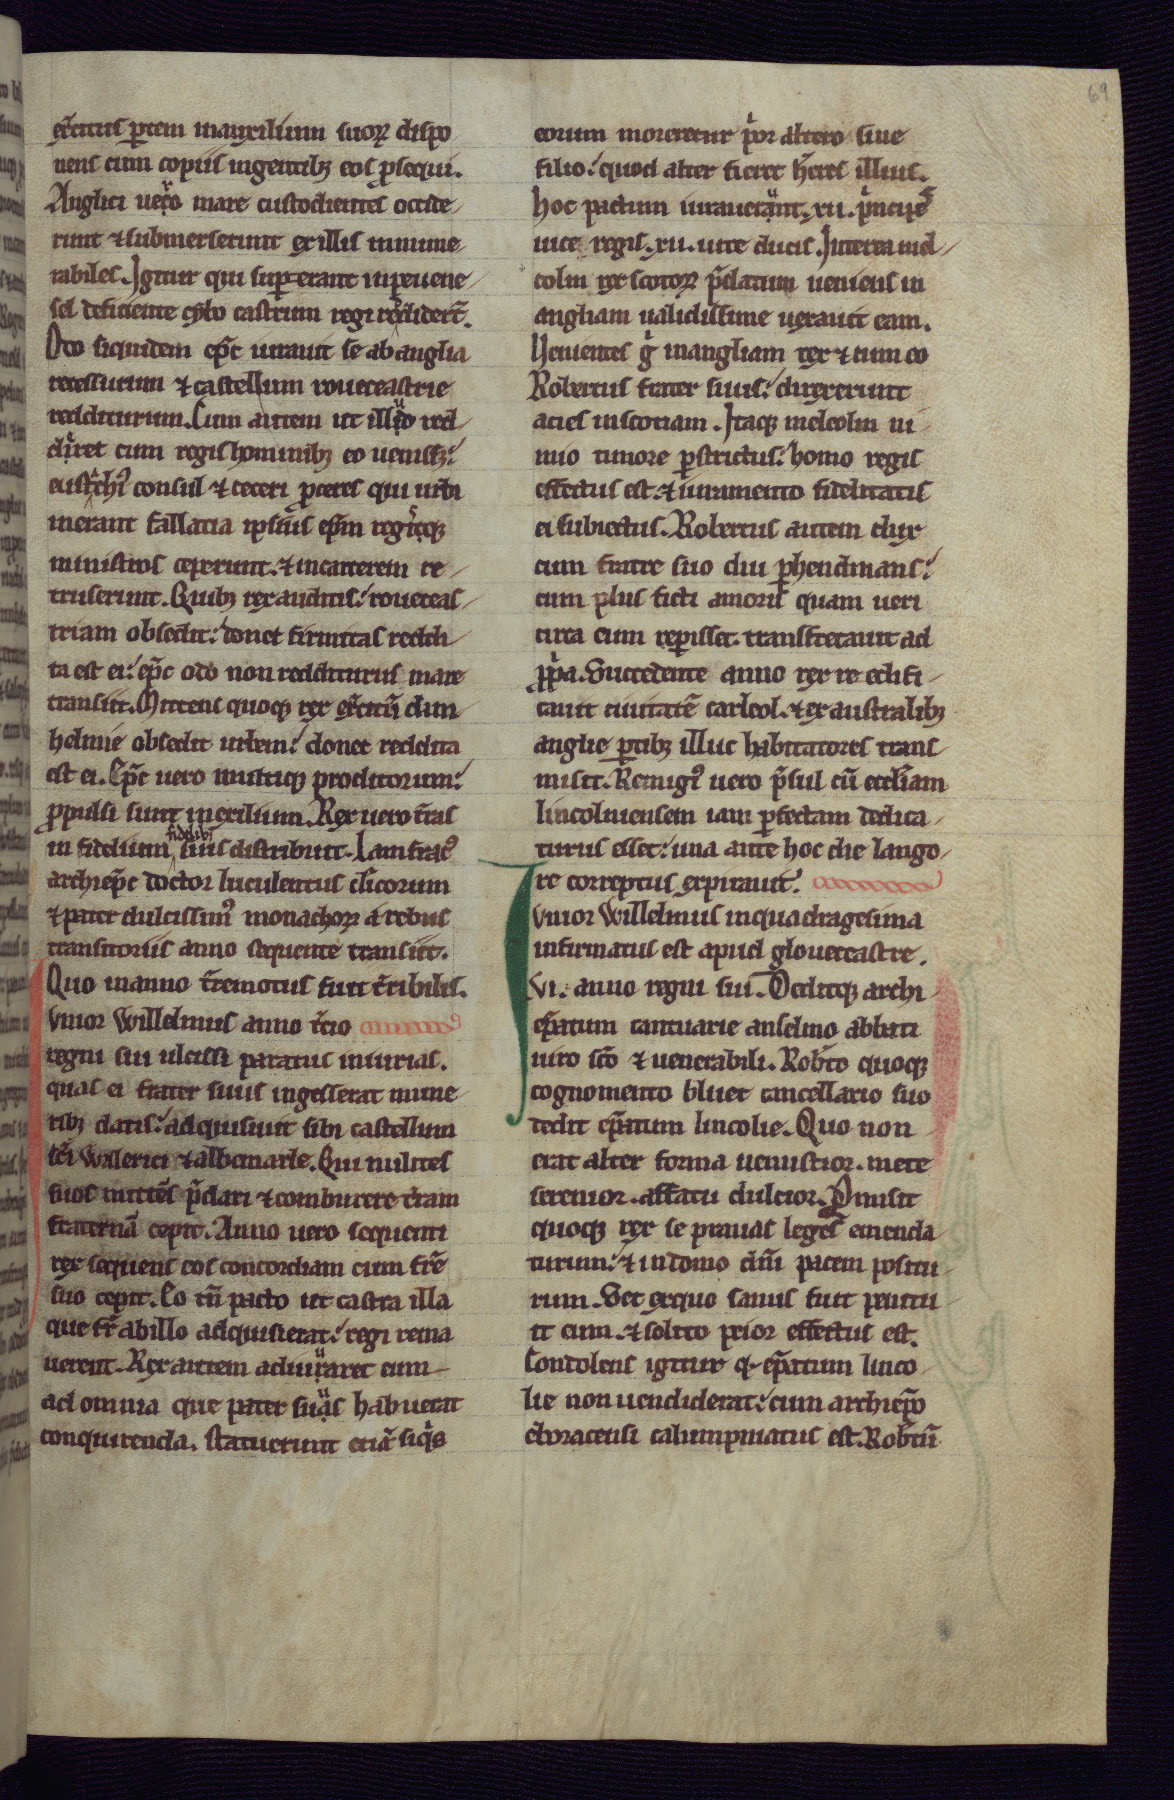 69
ex̄citus ꝑtem inauxilium suoꝝ dispo
nens cum copiis ingentibꝫ eos ꝓsequi.
Anglici uero mare custodientes occide-
runt ⁊submerserunt ex illis innume-
rabiles. Igitur qui suꝑerant inpeuene-
sel deficiente cybo castrum regi reddider̄t.
Odo siquidem ep̄c iurauit se ab anglia
recessurum ⁊ castellum roueceastrie
redditurum. Cum autem ut illud red-
deret cum regis hominibꝫ eo uenissꝫ:
eustachiꝰ consul ⁊ ceteri ꝓceres qui urbi
inerant fallacia ipsius ep̄m regisqꝫ
ministros ceperunt. ⁊ incarcerem re-
truserunt. Quibꝫ rex auditis: roueceas-
triam obsedit: donec firmitas reddi-
ta est ei: ep̄c odo non rediturus mare
transiit. Mittens quoqꝫ rex ex̄citū dun
helmie obsedit urbem: donec reddita
est ei. Ep̄c uero multiqꝫ proditorum:
ꝓpulsi sunt inexilium. Rex uero t̄ras
in fidelium fidelibꝰ suis distribuit. Lamfracꝰ
archiep̄c doctor luculentus cl̄icorum
⁊ pater dulcissimꝰ monachoꝝ a rebus
transitoriis anno sequente transiit.
Quo inanno t̄remotus fuit t̄ribilis.
Vnior Willelmus anno t̄cio
regni sui ulcissi paratus iniurias.
quas ei frater suus ingesserat mune-
ribꝫ datis: adquisiuit sibi castellum
sc̄i Walerici ⁊ albemarle. Qui milites
suos mittēs p̄dari ⁊ comburere t̄ram
fraternā cepit. Anno uero sequenti
rex sequens eos concordiam cum fr̄e
suo cepit. Eo tn̄ pacto ut castra illa
que fr̄ abillo adquisierat: regi rema
nerent. Rex autem adiuuaret eum-
ad omnia que pater suus habuerat
conquirenda. Statuerunt etiā siquis
eorum moreretur prior altero siue
filio: quod alter fieret h̄eres illius.
Hoc pactum iurauerunt. xii. principes
uice regis. xii. uice ducis. Interea mel-
colm rex scotoꝝ p̄datum ueniens in
angliam ualidissime uexauit eam.
Venientes gͥ inangliam rex ⁊ cum eo
Robertus frater suus: direxerunt
acies inscotiam. Itaqꝫ melcolm ni-
mio timore ꝑstrictus: homo regis
effectus est. ⁊ iuramento fidelitatis
ei subiectus. Robertus autem dux
cum fratre suo diu ꝑhendinans:
cum plus ficti amoris quam ueri
circa eum repisset. transfretauit ad
ꝓpria. Succedente anno rex re edifi-
cauit ciuitatē carleol. ⁊ ex australibꝫ
anglie ꝑtibꝫ illuc habitatores trans
misit. Remigiꝰ uero p̄sul cū eccl̄iam
lincolniensem iam ꝑfectam dedica-
turus esset: una ante hoc die lango-
re correptus expirauit.
Iunior Willelmus inquadragesima
infirmatus est apud glouecastre.
Vi. anno regni sui. Deditqꝫ archi-
ep̄atum cantuarie anselmo abbati
uiro sc̄o ⁊ uenerabili. Rob̄to quoqꝫ
cognomento bluet cancellario suo
dedit ep̄atum lincolie. Quo non
erat alter forma uenustior. mente
serenior. affatu dulcior. Promisit
quoqꝫ rex se prauas leges emenda
turum: ⁊ indomo dn̄i pacem positu-
rum. Set exquo sanus fuit penitu
it eum. ⁊ solito peior effectus est.
Condolens igitur qͦ ep̄atum linco-
lie non uendiderat: cum archiep̄o
eboracensi calumpniatus est. Rob̄tū